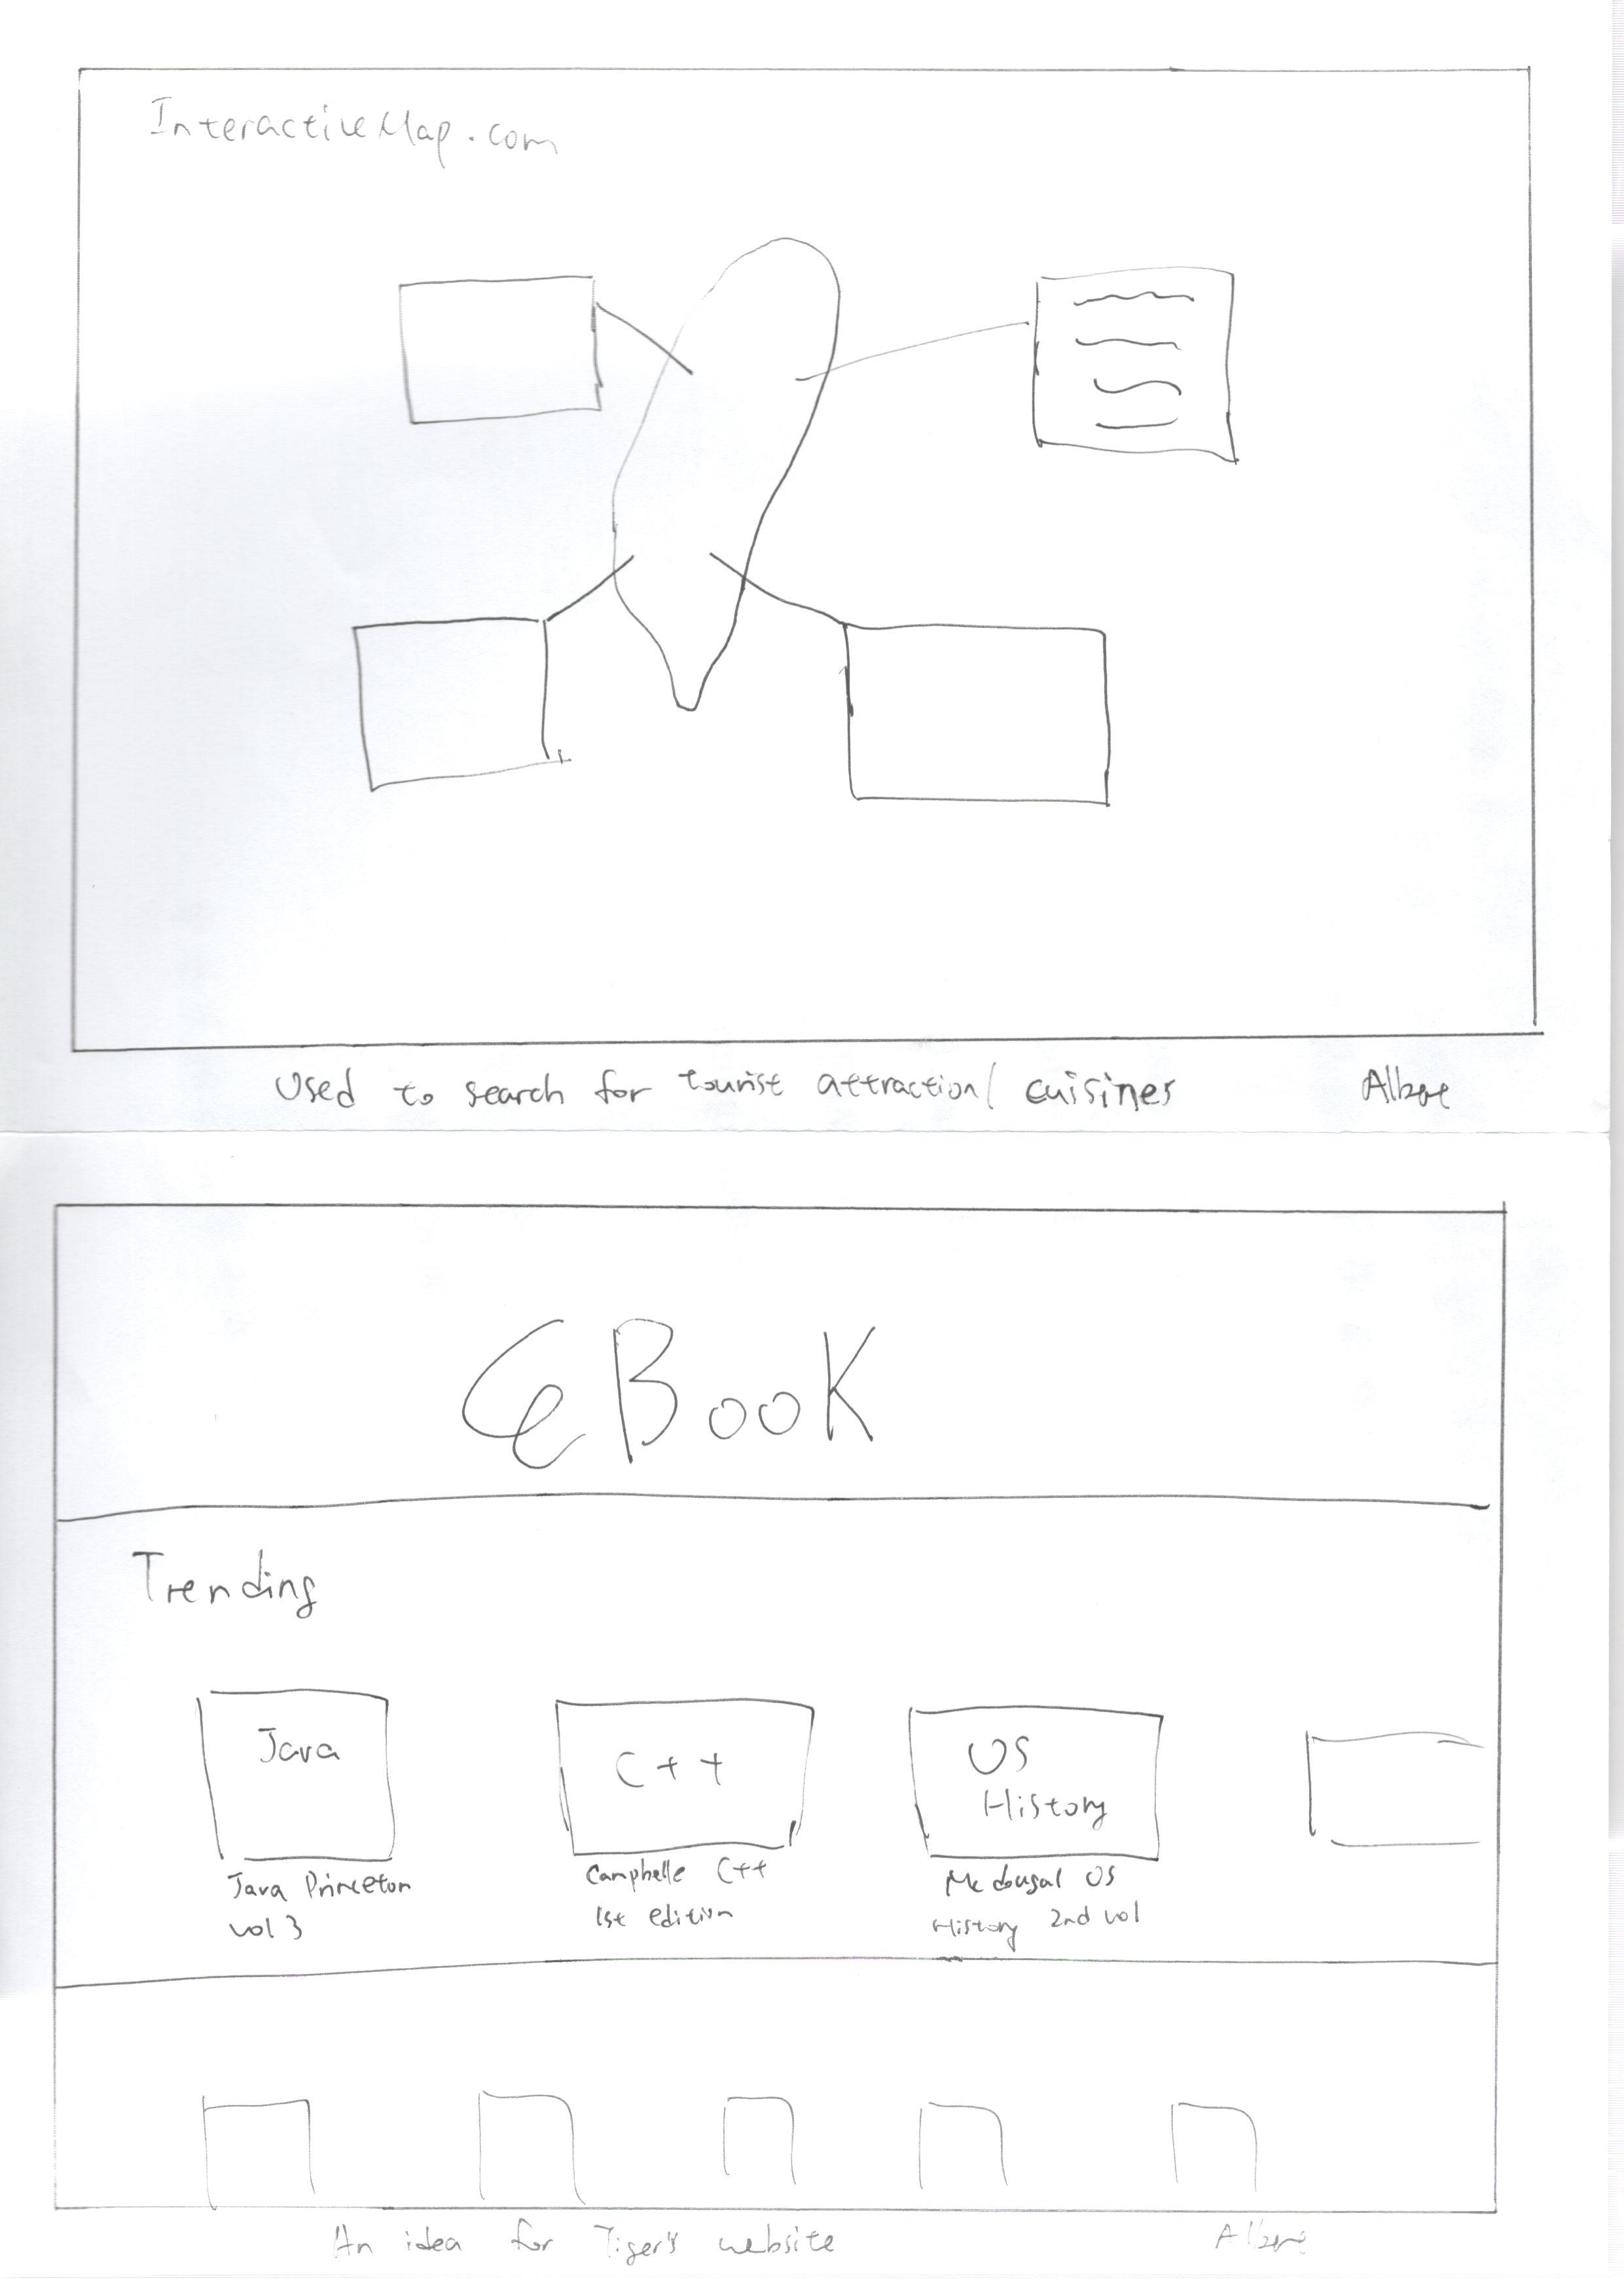 InteractiveMap.com
Used to search for tourist attraction/ cuisines
EBook
Trending
Java
C++
US
History
Java Princeton
vol 3
Camphelle C++
1st edition
Mcdougal US
History 2nd vol
An idea for Tiger's website